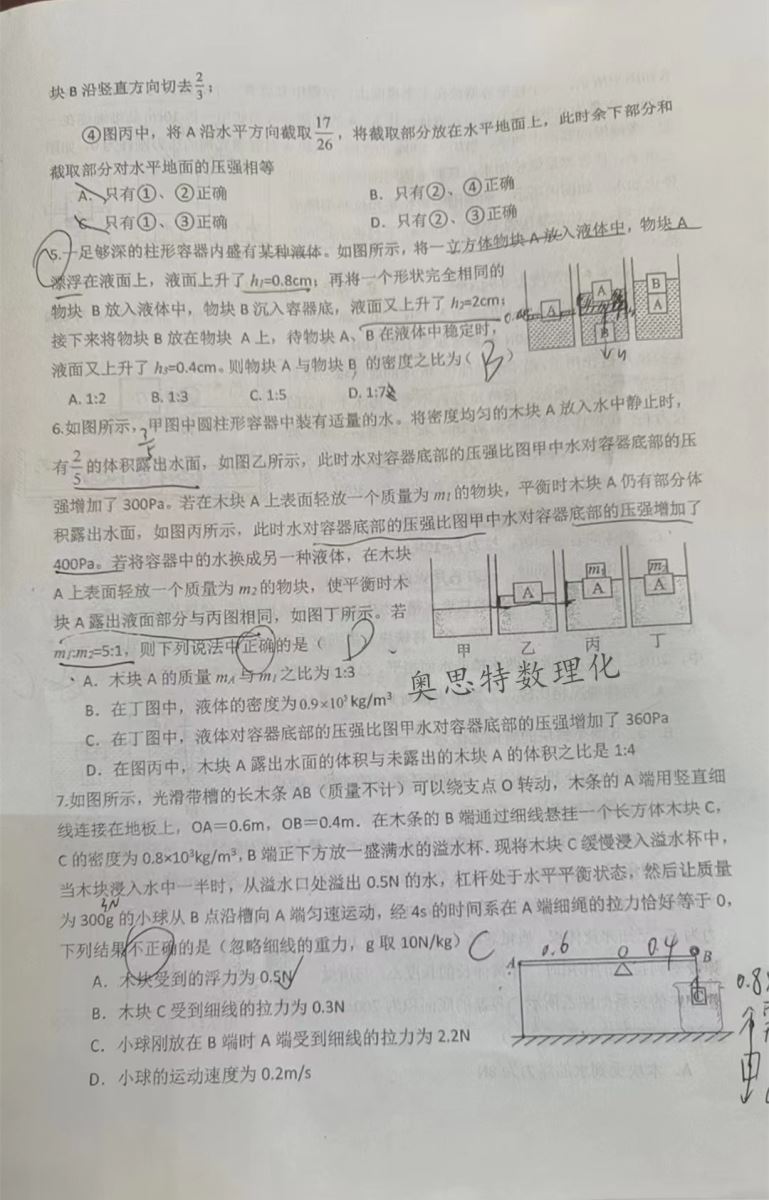 块 B 沿竖直方向切去2/3；
④图丙中，将 A 沿水平方向截取17/26，将截取部分放在水平地面上，此时余下部分和
截取部分对水平地面的压强相等
A. 只有①、②正确 B. 只有②、④正确
C. 只有①、③正确 D. 只有②、③正确
5.一足够深的柱形容器内盛有某种液体。如图所示，将一立方体物块 A 放入液体中，物块 A
漂浮在液面上，液面上升了 h₁=0.8cm；再将一个形状完全相同的
物块 B 放入液体中，物块 B 沉入容器底，液面又上升了 h₂=2cm；
接下来将物块 B 放在物块 A 上，待物块 A、B 在液体中稳定时，
液面又上升了 h₃=0.4cm。则物块 A 与物块 B 的密度之比为（ B ）
A. 1:2 B. 1:3 C. 1:5 D. 1:7
A A B B A
6.如图所示，甲图中圆柱形容器中装有适量的水。将密度均匀的木块 A 放入水中静止时，
3/5
有2/5的体积露出水面，如图乙所示，此时水对容器底部的压强比图甲中水对容器底部的压
强增加了 300Pa。若在木块 A 上表面轻放一个质量为 m₁ 的物块，平衡时木块 A 仍有部分体
积露出水面，如图丙所示，此时水对容器底部的压强比图甲中水对容器底部的压强增加了
400Pa。若将容器中的水换成另一种液体，在木块
A 上表面轻放一个质量为 m₂ 的物块，使平衡时木
块 A 露出液面部分与丙图相同，如图丁所示。若
m₁:m₂=5:1，则下列说法中正确的是（ D ）
A m₁ A m₂ A
甲 乙 丙 丁
A．木块 A 的质量 mA 与 m₁ 之比为 1:3
奥思特数理化
B．在丁图中，液体的密度为 0.9×10³ kg/m³
C．在丁图中，液体对容器底部的压强比图甲水对容器底部的压强增加了 360Pa
D．在图丙中，木块 A 露出水面的体积与未露出的木块 A 的体积之比是 1:4
7.如图所示，光滑带槽的长木条 AB（质量不计）可以绕支点 O 转动，木条的 A 端用竖直细
线连接在地板上，OA＝0.6m，OB＝0.4m．在木条的 B 端通过细线悬挂一个长方体木块 C，
C 的密度为 0.8×10³kg/m³，B 端正下方放一盛满水的溢水杯．现将木块 C 缓慢浸入溢水杯中，
当木块浸入水中一半时，从溢水口处溢出 0.5N 的水，杠杆处于水平平衡状态，然后让质量
3N
为 300g 的小球从 B 点沿槽向 A 端匀速运动，经 4s 的时间系在 A 端细绳的拉力恰好等于 0，
下列结果不正确的是（忽略细线的重力，g 取 10N/kg） C
A．木块受到的浮力为 0.5N
B．木块 C 受到细线的拉力为 0.3N
C．小球刚放在 B 端时 A 端受到细线的拉力为 2.2N
D．小球的运动速度为 0.2m/s
A 0.6 O 0.4 B
C